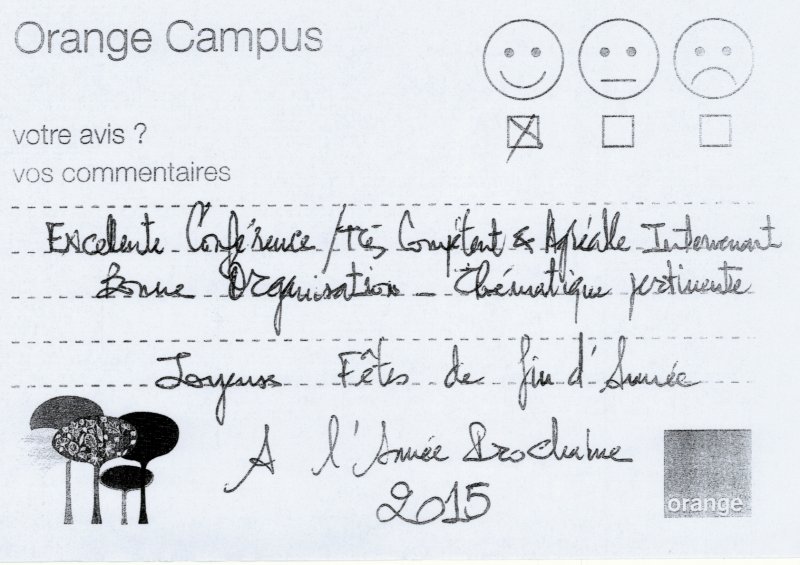 Orange Campus
votre avis ?
vos commentaires
Excellente Conférence / très Compétent & Agréable Intervenant
Bonne Organisation - thématique pertinente
Joyeuse Fêtes de fin d'Année
A l'Année Prochaine
2015
orange